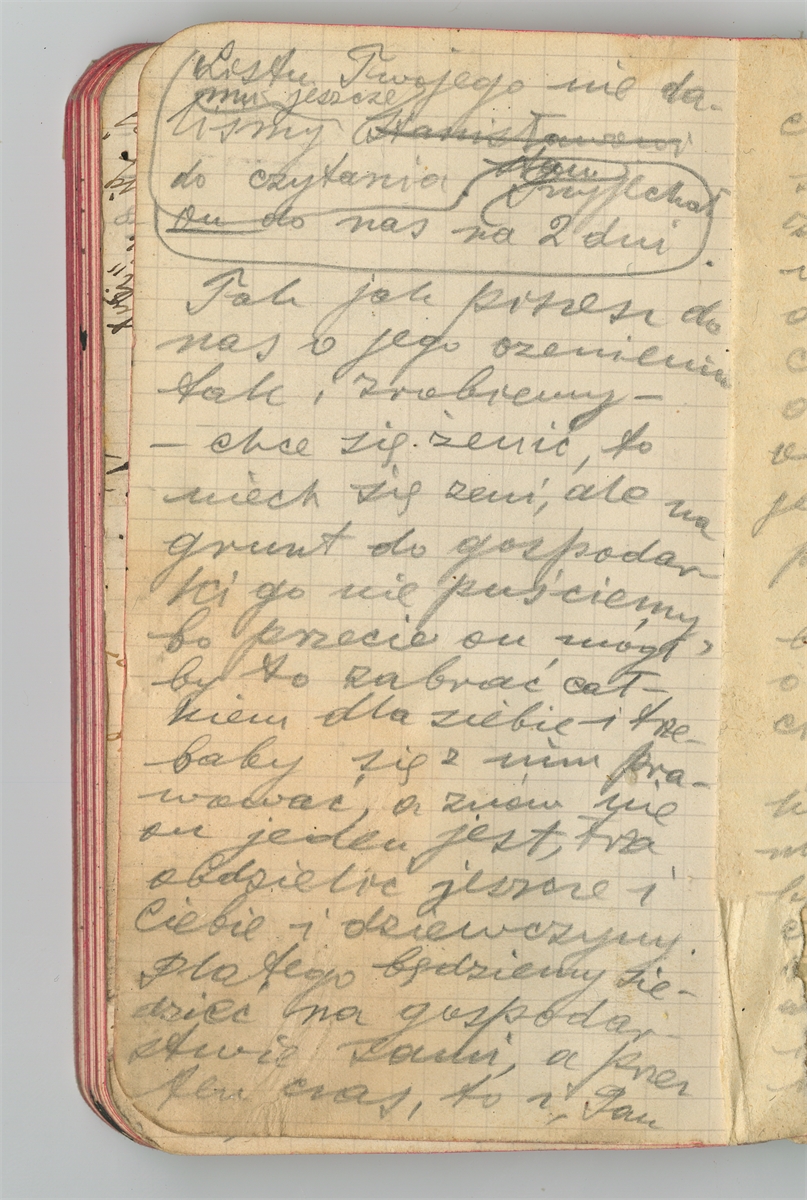 Listu Twojego nie da-
mu jeszcze
liśmy Stanisławowi
do czytania. Przyjechał
on do nas na 2 dni.
Tak jak piszesz do
nas o jego ożenieniu
tak i zrobiemy –
– chce się żenić, to
niech się żeni, ale na
grunt do gospodar
ki go nie puściemy,
bo przecie on mógł
by to zabrać cał-
kiem dla siebie i trze-
baby się z nim pra-
wować, a znów nie
on jeden jest, trza
obdzielić jeszcze i
Ciebie i dziewczyny.
Dlatego będziemy sie-
dzieć na gospodar
stwie sami, a przez
ten czas, to i, Pan